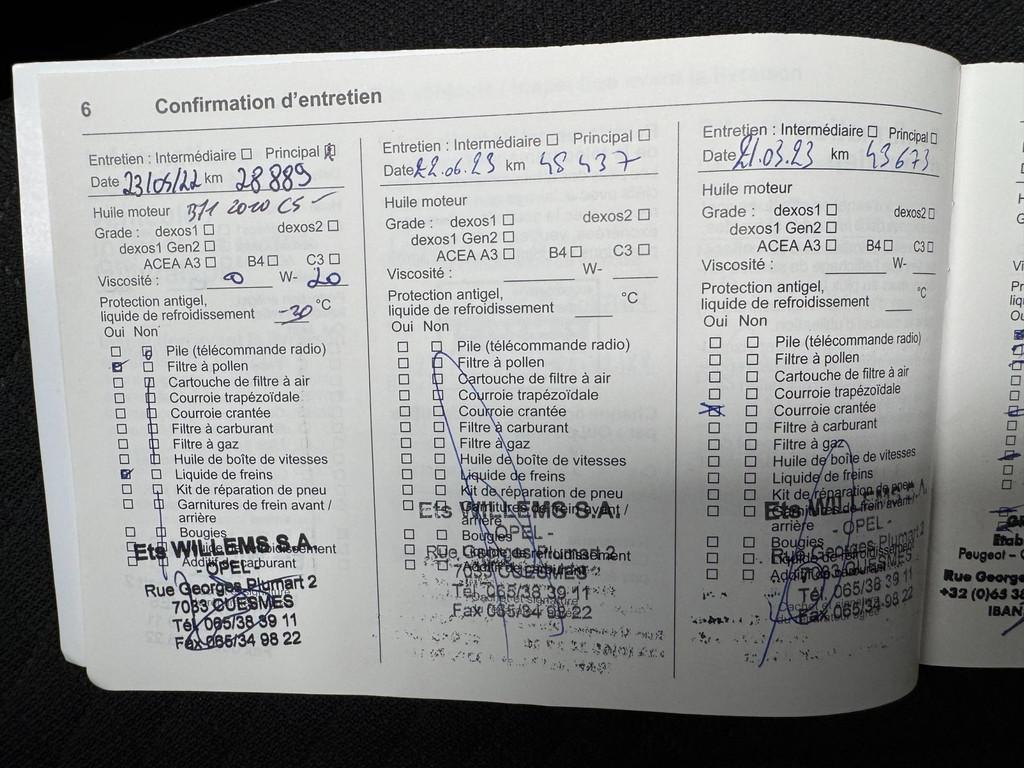 6 Confirmation d'entretien
Entretien : Intermédiaire Principal
Date 23/05/22 km 28889
Huile moteur
Grade : dexos1 dexos2
dexos1 Gen2
ACEA A3 B4 C3
Viscosité : 0 W- 20
Protection antigel,
liquide de refroidissement -30 °C
Oui Non
Pile (télécommande radio)
Filtre à pollen
Cartouche de filtre à air
Courroie trapézoïdale
Courroie crantée
Filtre à carburant
Filtre à gaz
Huile de boîte de vitesses
Liquide de freins
Kit de réparation de pneu
Garnitures de frein avant /
arrière
Bougies
Liquide de refroidissement
Additif carburant
Ets WILLEMS S.A.
- OPEL -
Rue Georges Plumart 2
7033 CUESMES
Tél. 065/38 39 11
Fax 065/34 98 22
Entretien : Intermédiaire Principal
Date 22.06.23 km 48437
Huile moteur
Grade : dexos1 dexos2
dexos1 Gen2
ACEA A3 B4 C3
Viscosité : W-
Protection antigel,
liquide de refroidissement °C
Oui Non
Pile (télécommande radio)
Filtre à pollen
Cartouche de filtre à air
Courroie trapézoïdale
Courroie crantée
Filtre à carburant
Filtre à gaz
Huile de boîte de vitesses
Liquide de freins
Kit de réparation de pneu
Garnitures de frein avant /
arrière
Bougies
Liquide de refroidissement
Additif carburant
Ets WILLEMS S.A.
- OPEL -
Rue Georges Plumart 2
7033 CUESMES
Tél. 065/38 39 11
Fax 065/34 98 22
Entretien : Intermédiaire Principal
Date 21.03.23 km 43673
Huile moteur
Grade : dexos1 dexos2
dexos1 Gen2
ACEA A3 B4 C3
Viscosité : W-
Protection antigel,
liquide de refroidissement °C
Oui Non
Pile (télécommande radio)
Filtre à pollen
Cartouche de filtre à air
Courroie trapézoïdale
Courroie crantée
Filtre à carburant
Filtre à gaz
Huile de boîte de vitesses
Liquide de freins
Kit de réparation de pneu
Garnitures de frein avant /
arrière
Bougies
Liquide de refroidissement
Additif carburant
Ets WILLEMS S.A.
- OPEL -
Rue Georges Plumart 2
7033 CUESMES
Tél. 065/38 39 11
Fax 065/34 98 22
Peugeot -
Rue George
+32 (0)65 38
IBAN